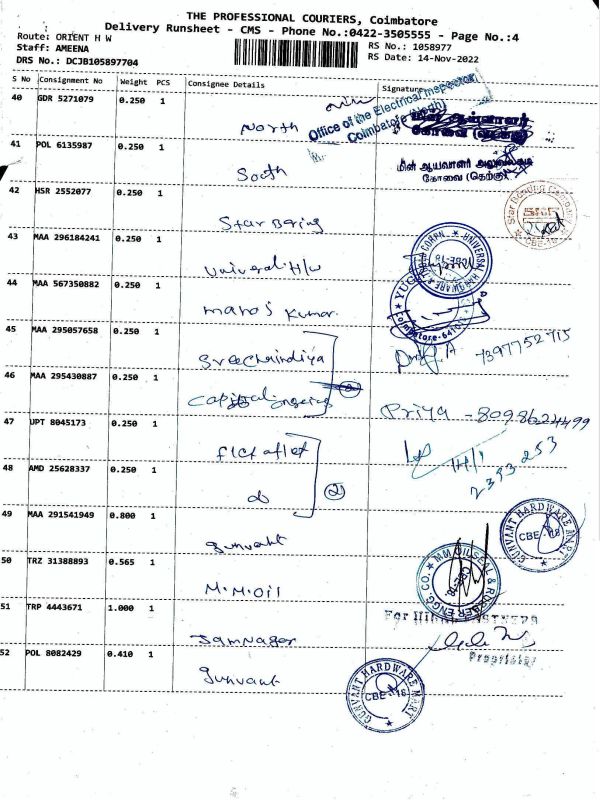 THE PROFESSIONAL COURIERS, Coimbatore
Delivery Runsheet - CMS - Phone No.:0422-3505555 - Page No.:4
Route: ORIENT H W
Staff: AMEENA
DRS No.: DCJB105897704
RS No.: 1058977
RS Date: 14-Nov-2022
S No Consignment No Weight PCS Consignee Details Signature
40 GDR 5271079 0.250 1 North
Office of the Electrical Inspector
Coimbatore (North)
மின் ஆய்வாளர்
கோவை (வடக்கு)
41 POL 6135987 0.250 1 South
மின் ஆய்வாளர் அலுவலகம்
கோவை (தெற்கு)
42 HSR 2552077 0.250 1 Star Bering
Star Bonding Company
CBE-18
43 MAA 296184241 0.250 1 Universal H/w
UNIVERSAL HARDWARE & CORPN.
CBE-18
44 MAA 567350882 0.250 1 Manoj Kumar
Coimbatore-6410
45 MAA 295057658 0.250 1 Sreechaindiya
7397752715
46 MAA 295430887 0.250 1 Capital
②
Priya - 8098624499
47 UPT 8045173 0.250 1
H/1
2393253
48 AMD 25628337 0.250 1 do
②
49 MAA 291541949 0.800 1 Gunvant
GUNVANT HARDWARE MART
CBE-18
50 TRZ 31388893 0.565 1 M.M.Oil
MM OILSEAL & RUBBER ENGG. CO.
CBE-18
51 TRP 4443671 1.000 1 Jamnagar
For
Proprietor
52 POL 8082429 0.410 1 Gunvant
GUNVANT HARDWARE MART
CBE-18